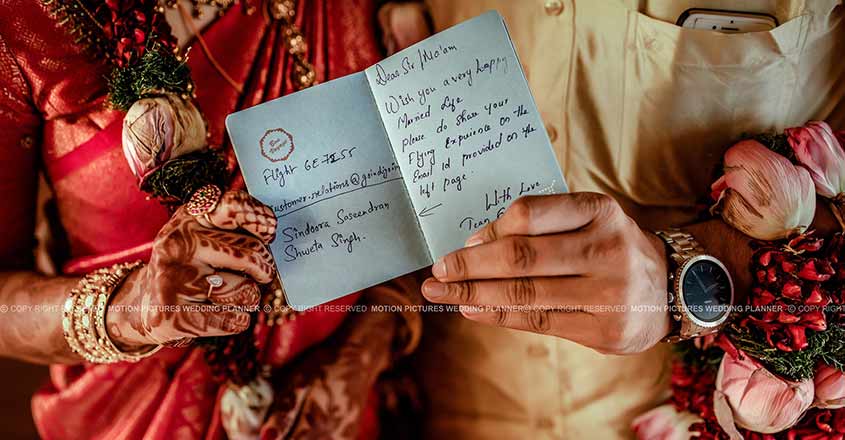 Flight 6E 7255
customer.relations@goindigo.in
Sindoora Saseendran
Shweta Singh.
Dear Sir / Ma'am
Wish you a very happy
Married Life
please do share your
Flying Experience on the
Email Id provided on the
left page.
With Love
Team 6
© COPY RIGHT RESERVED MOTION PICTURES WEDDING PLANNER © COPY RIGHT RESERVED MOTION PICTURES WEDDING PLANNER © COPY RIGHT RESERVED MOTION PICTURES WEDDING PLANNER © COPY RIGHT RESERVED